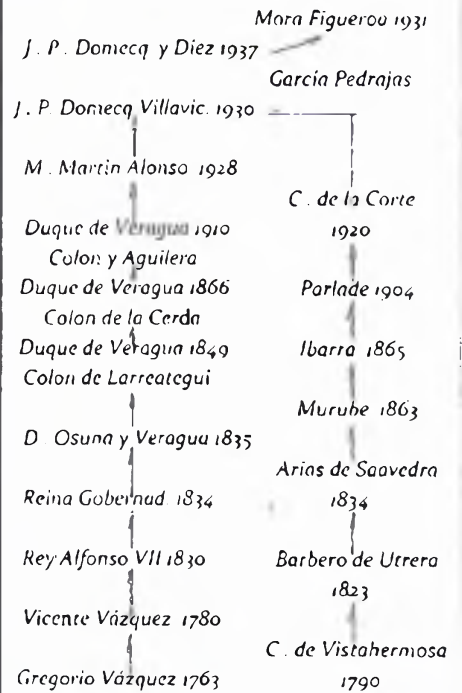 Mora Figueroo 1931
J. P. Domecq y Diez 1937
García Pedrajas
J. P. Domecq Villavic. 1930
M. Martin Alonso 1928
Duque de Veragua 1910
Colon y Aguilera
Duque de Veragua 1866
Colon de la Cerda
Duque de Veragua 1849
Colon de Larreategui
D. Osuna y Veragua 1835
Reina Gobernad. 1834
Rey Alfonso VII 1830
Vicente Vázquez 1780
Gregorio Vázquez 1763
C. de la Corte
1920
Parlade 1904
Ibarra 1865
Murube 1863
Arias de Saavedra
1834
Barbero de Utrera
1823
C. de Vistahermosa
1790